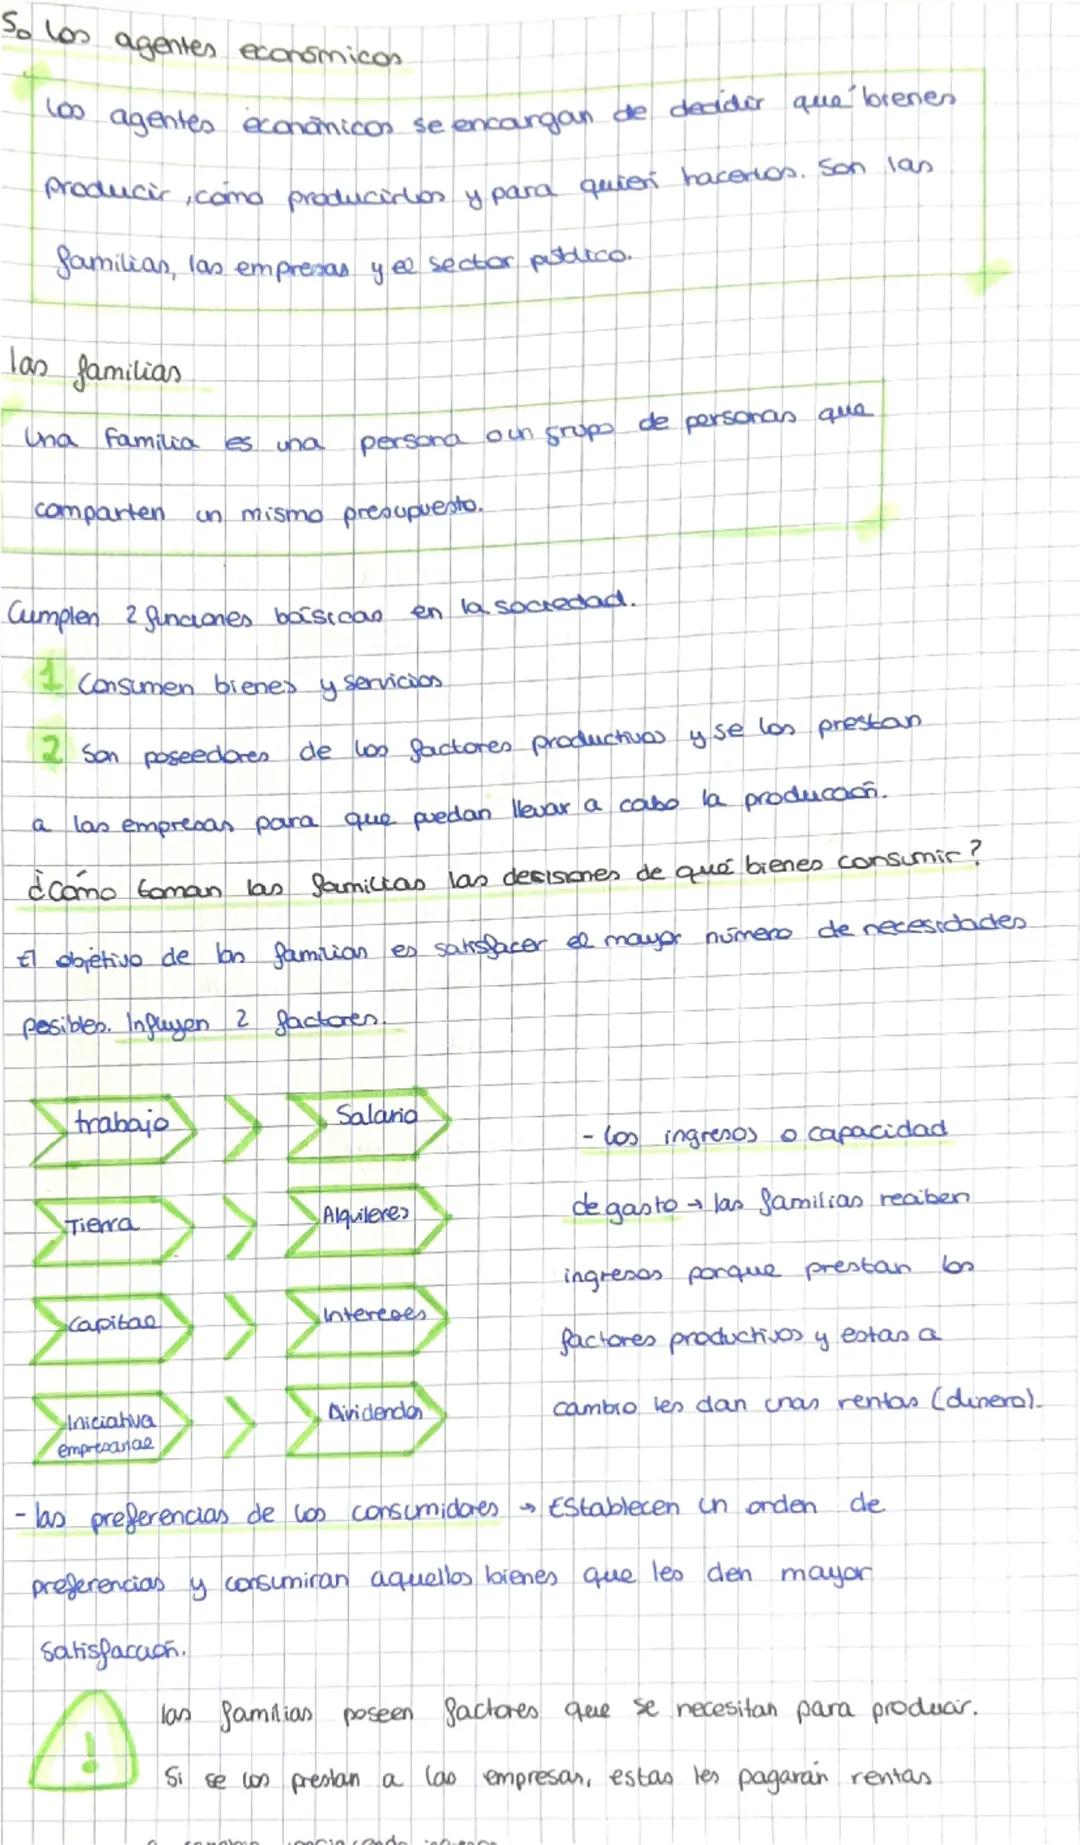 5. los agentes económicos
los agentes económicos se encargan de decidir qué bienes
producir, cómo producirlos y para quién hacerlos. Son las
familias, las empresas y el sector público.
las familias
Una familia es una persona o un grupo de personas que
comparten un mismo presupuesto.
Cumplen 2 funciones básicas en la sociedad.
1 Consumen bienes y servicios
2 Son poseedores de los factores productivos y se los prestan
a las empresas para que puedan llevar a cabo la producción.
¿Cómo toman las familias las desisiones de qué bienes consumir?
El objetivo de las familias es satisfacer el mayor número de necesidades
posibles. Influyen 2 factores.
trabajo > Salario
Tierra > Alquileres
Capital > Intereses
Iniciativa empresarial > Dividendos
- los ingresos o capacidad
de gasto → las familias reciben
ingresos porque prestan los
factores productivos y estas a
cambio les dan unas rentas (dinero).
- las preferencias de los consumidores → Establecen un orden de
preferencias y consumiran aquellos bienes que les den mayor
satisfacción.
! las familias poseen factores que se necesitan para producir.
Si se los prestan a las empresas, estas les pagarán rentas